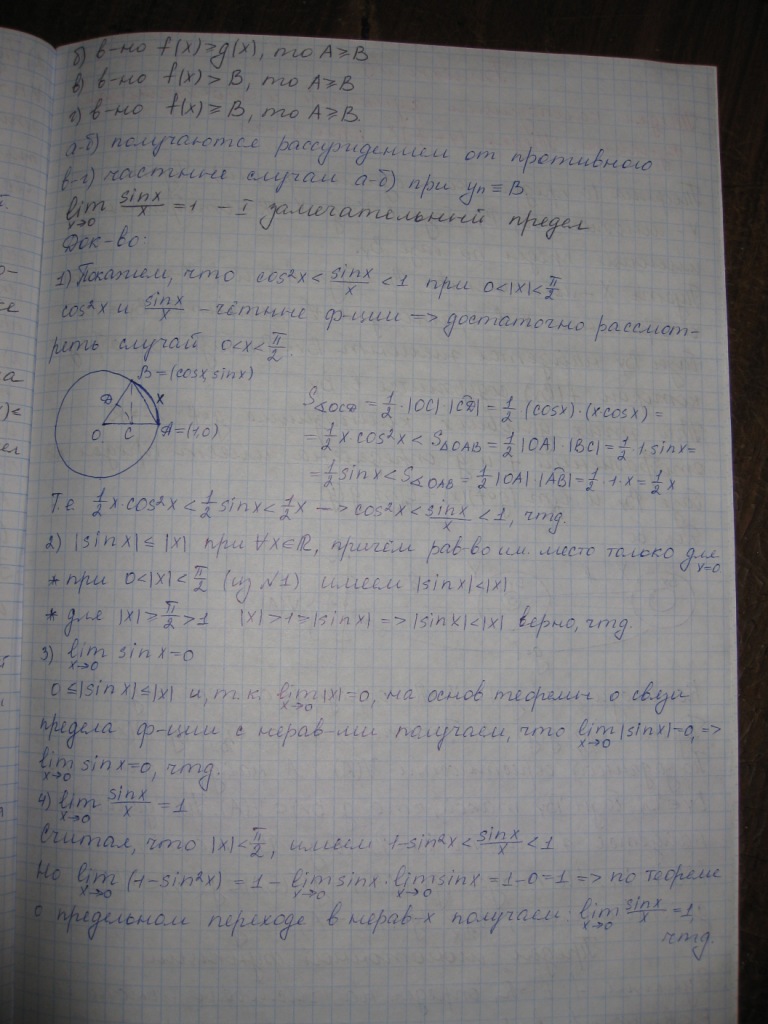 б) в-но f(x)>g(x), то A≥B
в) в-но f(x)>B, то A≥B
г) в-но f(x)≥B, то A≥B.
а-б) получаются рассуждением от противного
в-г) частные случаи а-б) при yn≡B.
lim x→0 sinx/x = 1 - I замечательный предел
Док-во:
1) Покажем, что cos²x < sinx/x < 1 при 0<|x|<π/2
cos²x и sinx/x - чётные ф-ции => достаточно рассмот-
реть случай 0<x<π/2.
B=(cosx, sinx)
D
x
O
C
A=(1,0)
S∢OCD = 1/2·|OC|·|CD| = 1/2 (cosx)·(xcosx) =
= 1/2 x cos²x < S△OAB = 1/2|OA| |BC| = 1/2·1·sinx =
= 1/2 sinx < S∢OAB = 1/2|OA|·|AB| = 1/2·1·x = 1/2 x
Т.е. 1/2 x·cos²x < 1/2 sinx < 1/2 x —> cos²x < sinx/x < 1, чтд.
2) |sinx| ≤ |x| при ∀x∈R, причём рав-во им. место только для x=0
* при 0<|x|<π/2 (из №1) имеем |sinx|<|x|
* для |x|≥π/2>1 |x|>1≥|sinx| => |sinx|<|x| верно, чтд.
3) lim x→0 sinx=0
0≤|sinx|≤|x| и, т.к. lim x→0 |x|=0, на основ теоремы о связи
предела ф-ции с нерав-ми получаем, что lim x→0 |sinx|=0, =>
lim x→0 sinx=0, чтд.
4) lim x→0 sinx/x = 1
Считая, что |x|<π/2, имеем 1-sin²x < sinx/x < 1
Но lim x→0 (1-sin²x) = 1 - lim x→0 sinx · lim x→0 sinx = 1-0=1 => по теореме
о предельном переходе в нерав-х получаем lim x→0 sinx/x = 1,
чтд.